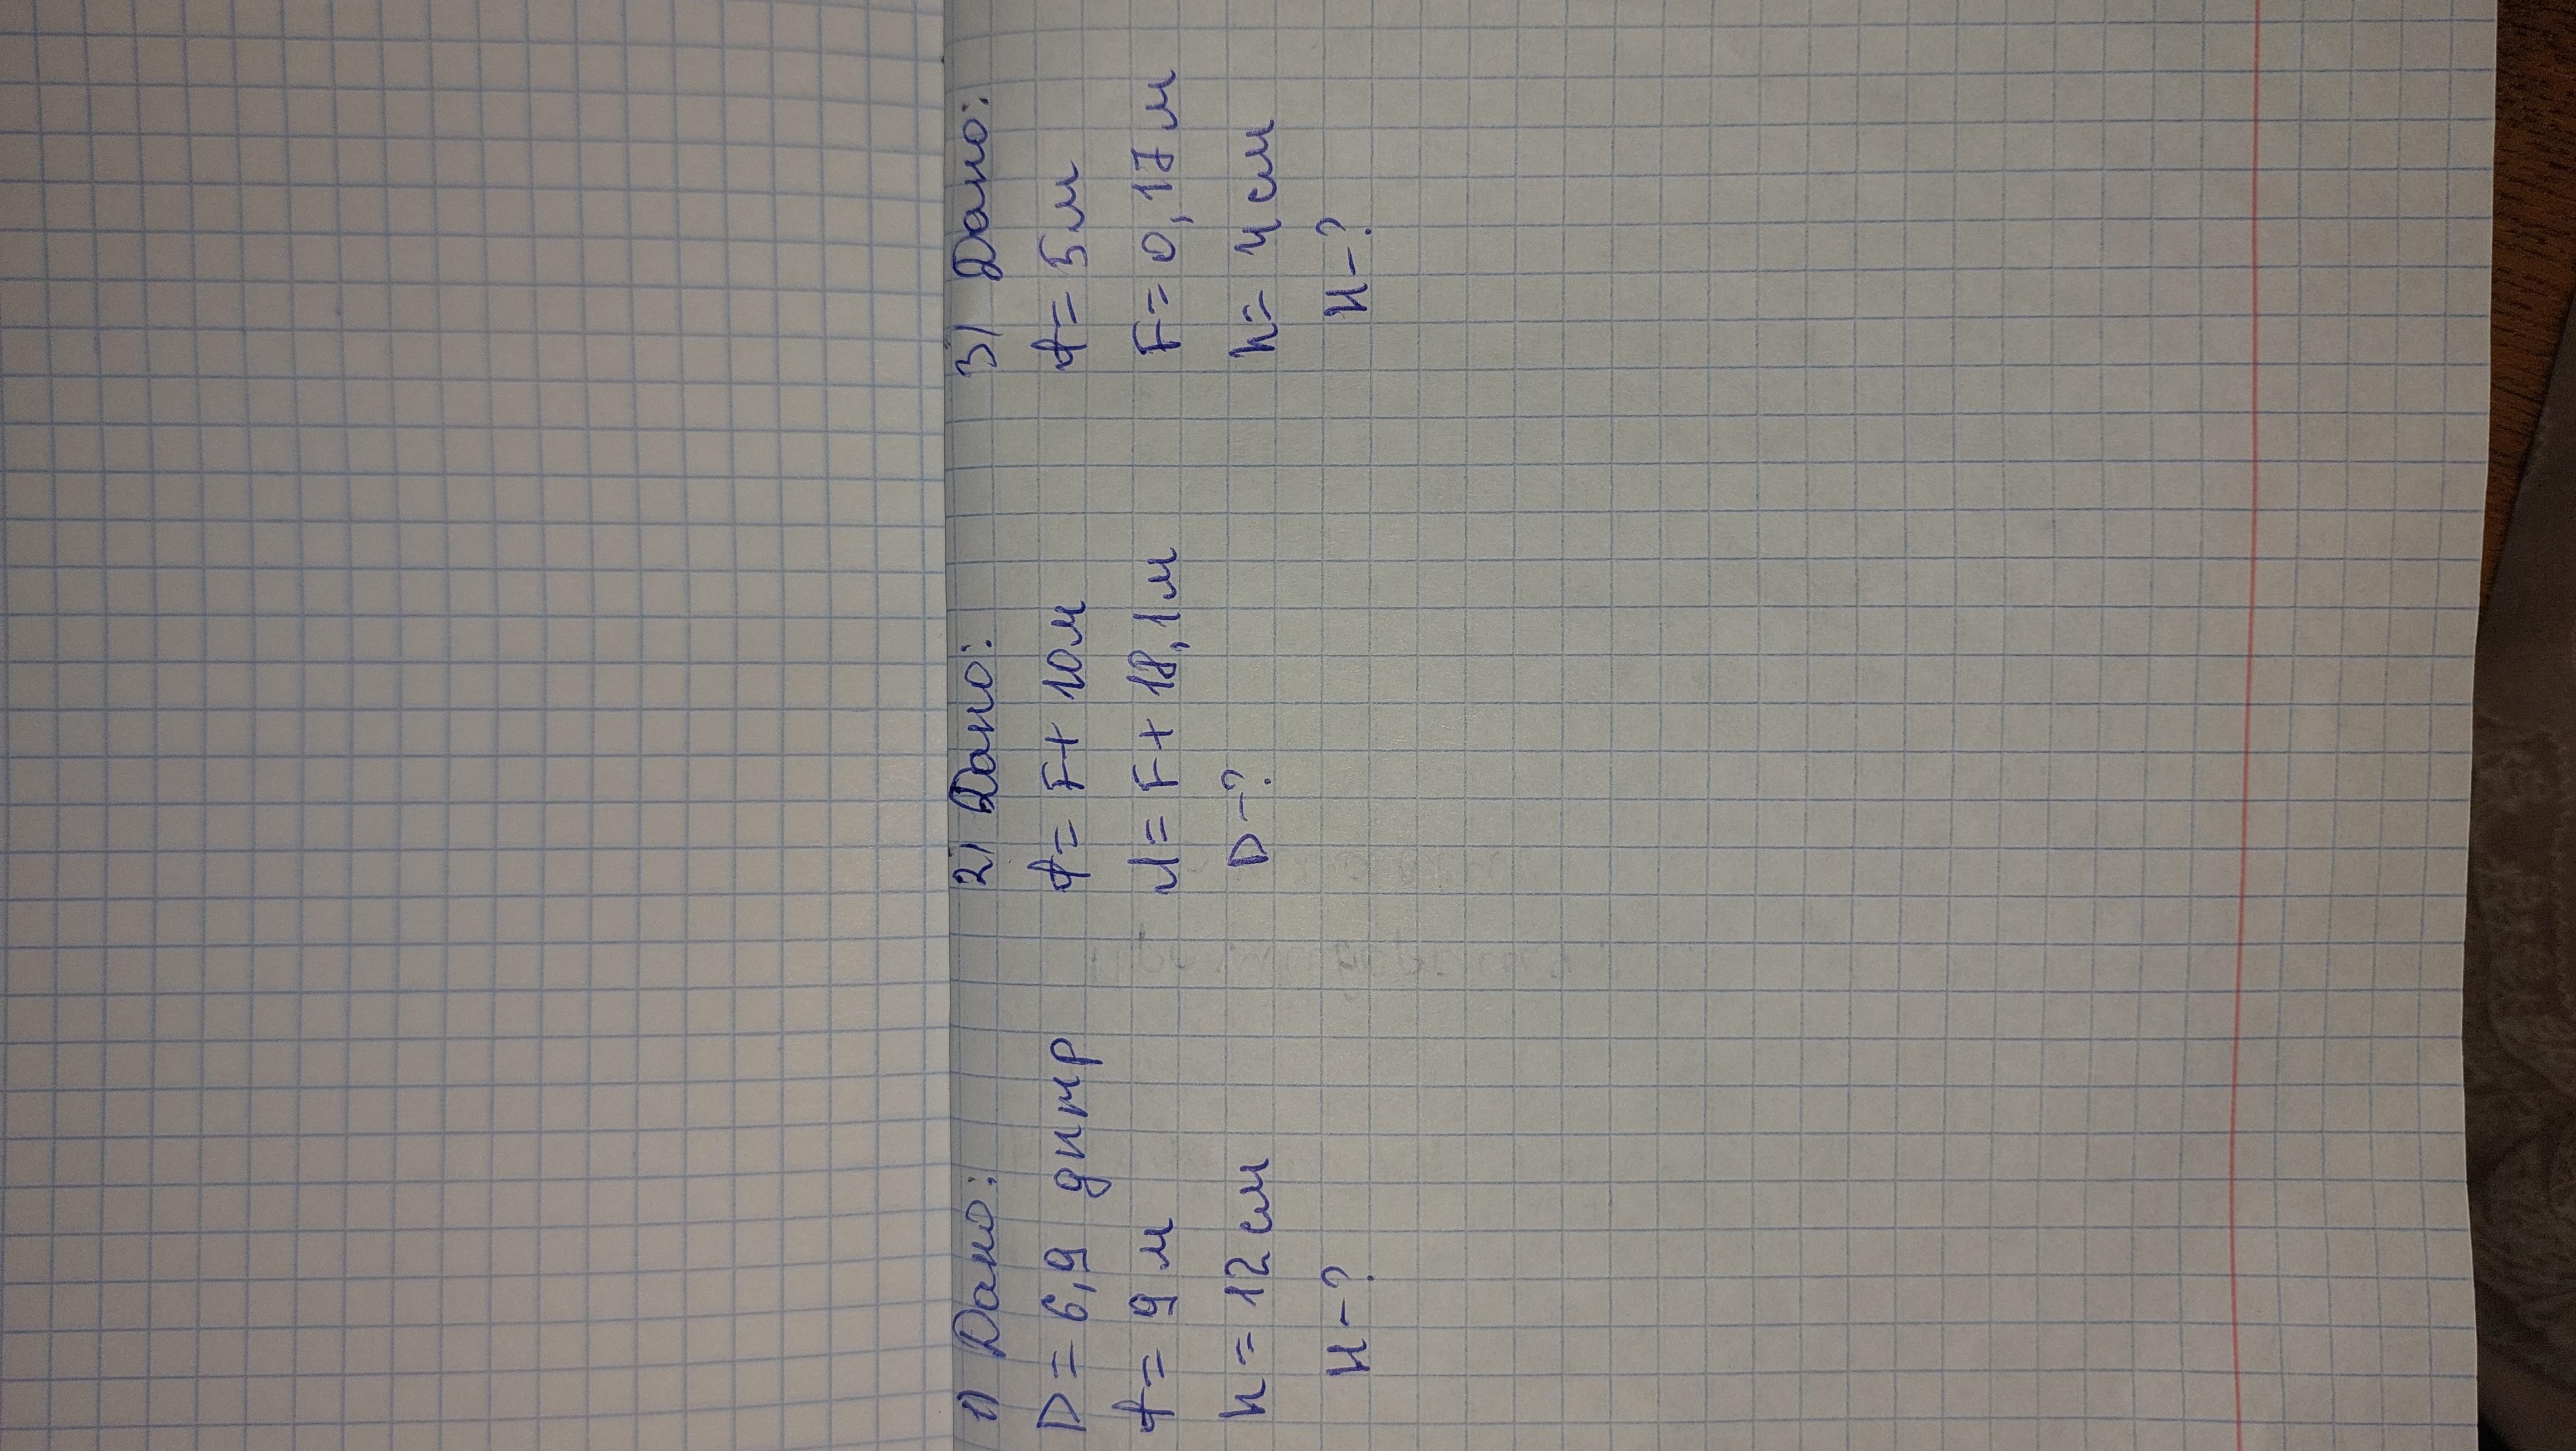 1) Дано:
D = 6,9 дптр
f = 9 м
h = 12 см
H - ?
2) Дано:
f = F + 10 м
d = F + 18,1 м
D - ?
3) Дано:
f = 5 м
F = 0,17 м
h = 4 см
H - ?